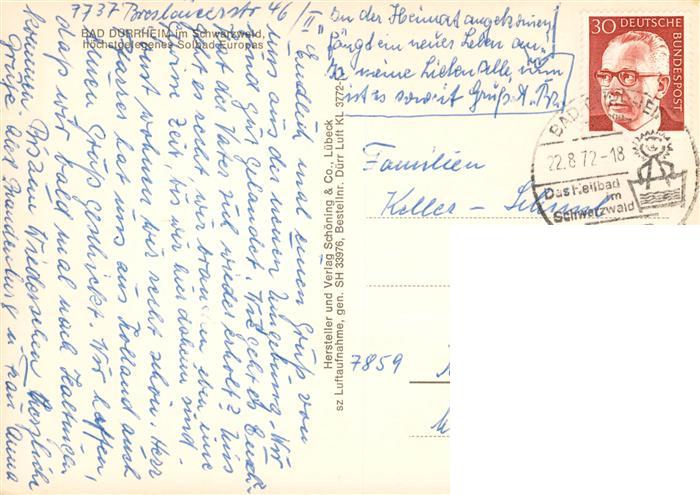 7737 Breslauerstr 46/II
BAD DÜRRHEIM im Schwarzwald,
Höchstgelegenes Solbad Europas
Endlich mal einen Gruß von
uns aus der neuen Umgebung. Wir
sind gut gelandet. Wie geht es Euch
hat der Vater sich wieder erholt? Uns
geht es recht wir brauchen eben eine
Zeit, bis wir hier daheim sind.
wohnen wir recht schön. Herr
hat uns aus Holland auch
einen Gruß geschickt. Wir hoffen,
daß wir bald mal nach Haltingen
kommen. Bis dann Wiedersehn Herzliche
Grüße. Alex Brandenburg u Frau Anna
Hersteller und Verlag Schöning & Co., Lübeck
sz Luftaufnahme, gen. SH 33976, Bestellnr. Dürr Luft KL 3772
"In der Heimat angekommen
fängt ein neues Leben an"
meine Lieben alle, nun
ist es soweit Gruß A. Br.
30 DEUTSCHE
BUNDESPOST
BAD DÜRRHEIM
22.8.72-18
Das Heilbad
im
Schwarzwald
Familien
Keller-
7859